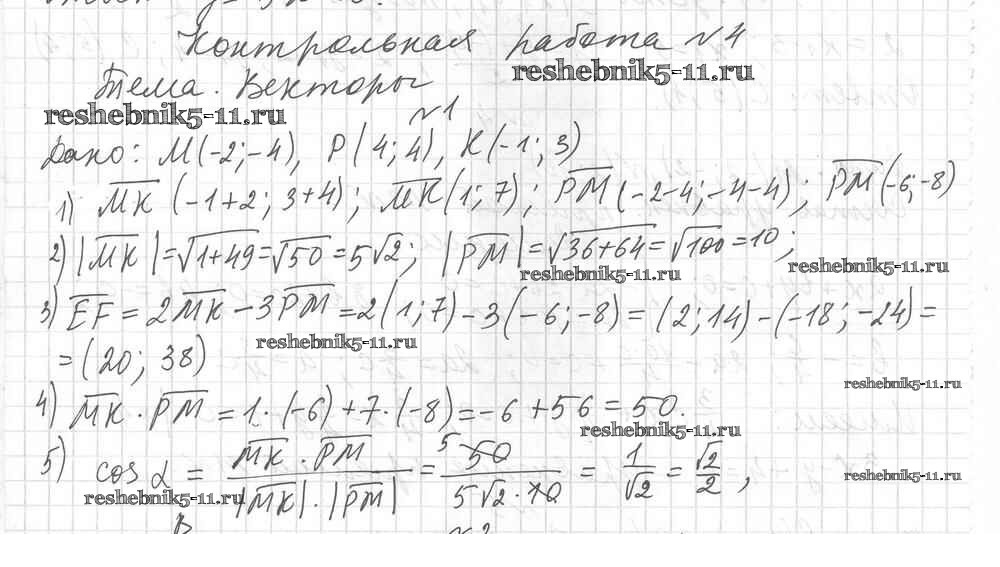 Контрольная работа №4
reshebnik5-11.ru
Тема. Векторы
reshebnik5-11.ru
№1
Дано: М(-2;-4), Р(4;4), К(-1;3)
1) MK (-1+2; 3+4); MK(1;7); PM(-2-4;-4-4); PM(-6;-8)
2) |MK|=√1+49=√50=5√2; |PM|=√36+64=√100=10;
reshebnik5-11.ru
reshebnik5-11.ru
3) EF=2MK-3PM=2(1;7)-3(-6;-8)=(2;14)-(-18;-24)=
reshebnik5-11.ru
=(20; 38)
reshebnik5-11.ru
4) MK·PM=1·(-6)+7·(-8)=-6+56=50.
reshebnik5-11.ru
5) cos α = MK·PM / |MK|·|PM| = 5 50 / 5√2·10 = 1/√2 = √2/2,
reshebnik5-11.ru
reshebnik5-11.ru